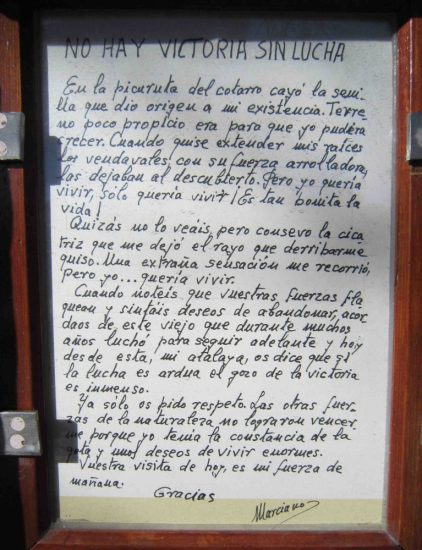 NO HAY VICTORIA SIN LUCHA
En la picuruta del cotarro cayó la semi-
lla que dio origen a mi existencia. Terre-
no poco propicio era para que yo pudiera
crecer. Cuando quise extender mis raíces
los vendavales, con su fuerza arrolladora,
las dejaban al descubierto. Pero yo quería
vivir, sólo quería vivir ¡Es tan bonita la
vida!
Quizás no lo veáis, pero consevo la cica
triz que me dejó el rayo que derribarme
quiso. Una extraña sensación me recorrió,
pero yo... quería vivir.
Cuando notéis que vuestras fuerzas fla
quean y sintáis deseos de abandonar, acor
daos de este viejo que durante muchos
años luchó para seguir adelante y hoy
desde esta, mi atalaya, os dice que si
la lucha es ardua el gozo de la victoria
es inmenso.
Ya sólo os pido respeto. Las otras fuer-
zas de la naturaleza no lograron vencer
me porque yo tenía la constancia de la
gota y unos deseos de vivir enormes.
Vuestra visita de hoy, es mi fuerza de
mañana.
Gracias
Marciano